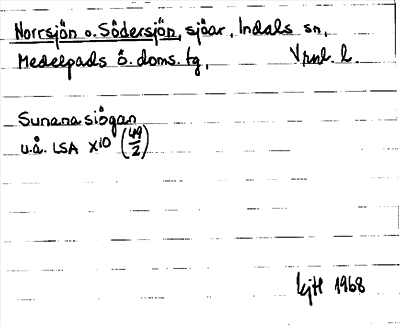 Norrsjön o. Södersjön, sjöar, Indals sn,
Medelpads ö. doms. tg, Vrnl. l.
Sunanasiögan
u.å. LSA X10 (49/2)
kjH 1968